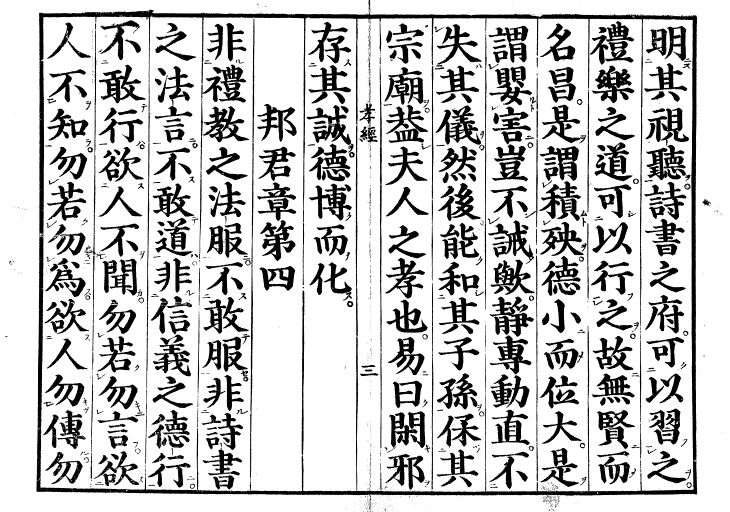 明其視聽詩書之府可以習之
禮樂之道可以行之故無賢而
名昌是謂積殃德小而位大是
謂嬰害豈不誡歟靜專動直不
失其儀然後能和其子孫保其
宗廟葢夫人之孝也易曰閑邪
存其誠德博而化
孝經
三
邦君章第四
非禮教之法服不敢服非詩書
之法言不敢道非信義之德行
不敢行欲人不聞勿若勿言欲
人不知勿若勿爲欲人勿傳勿